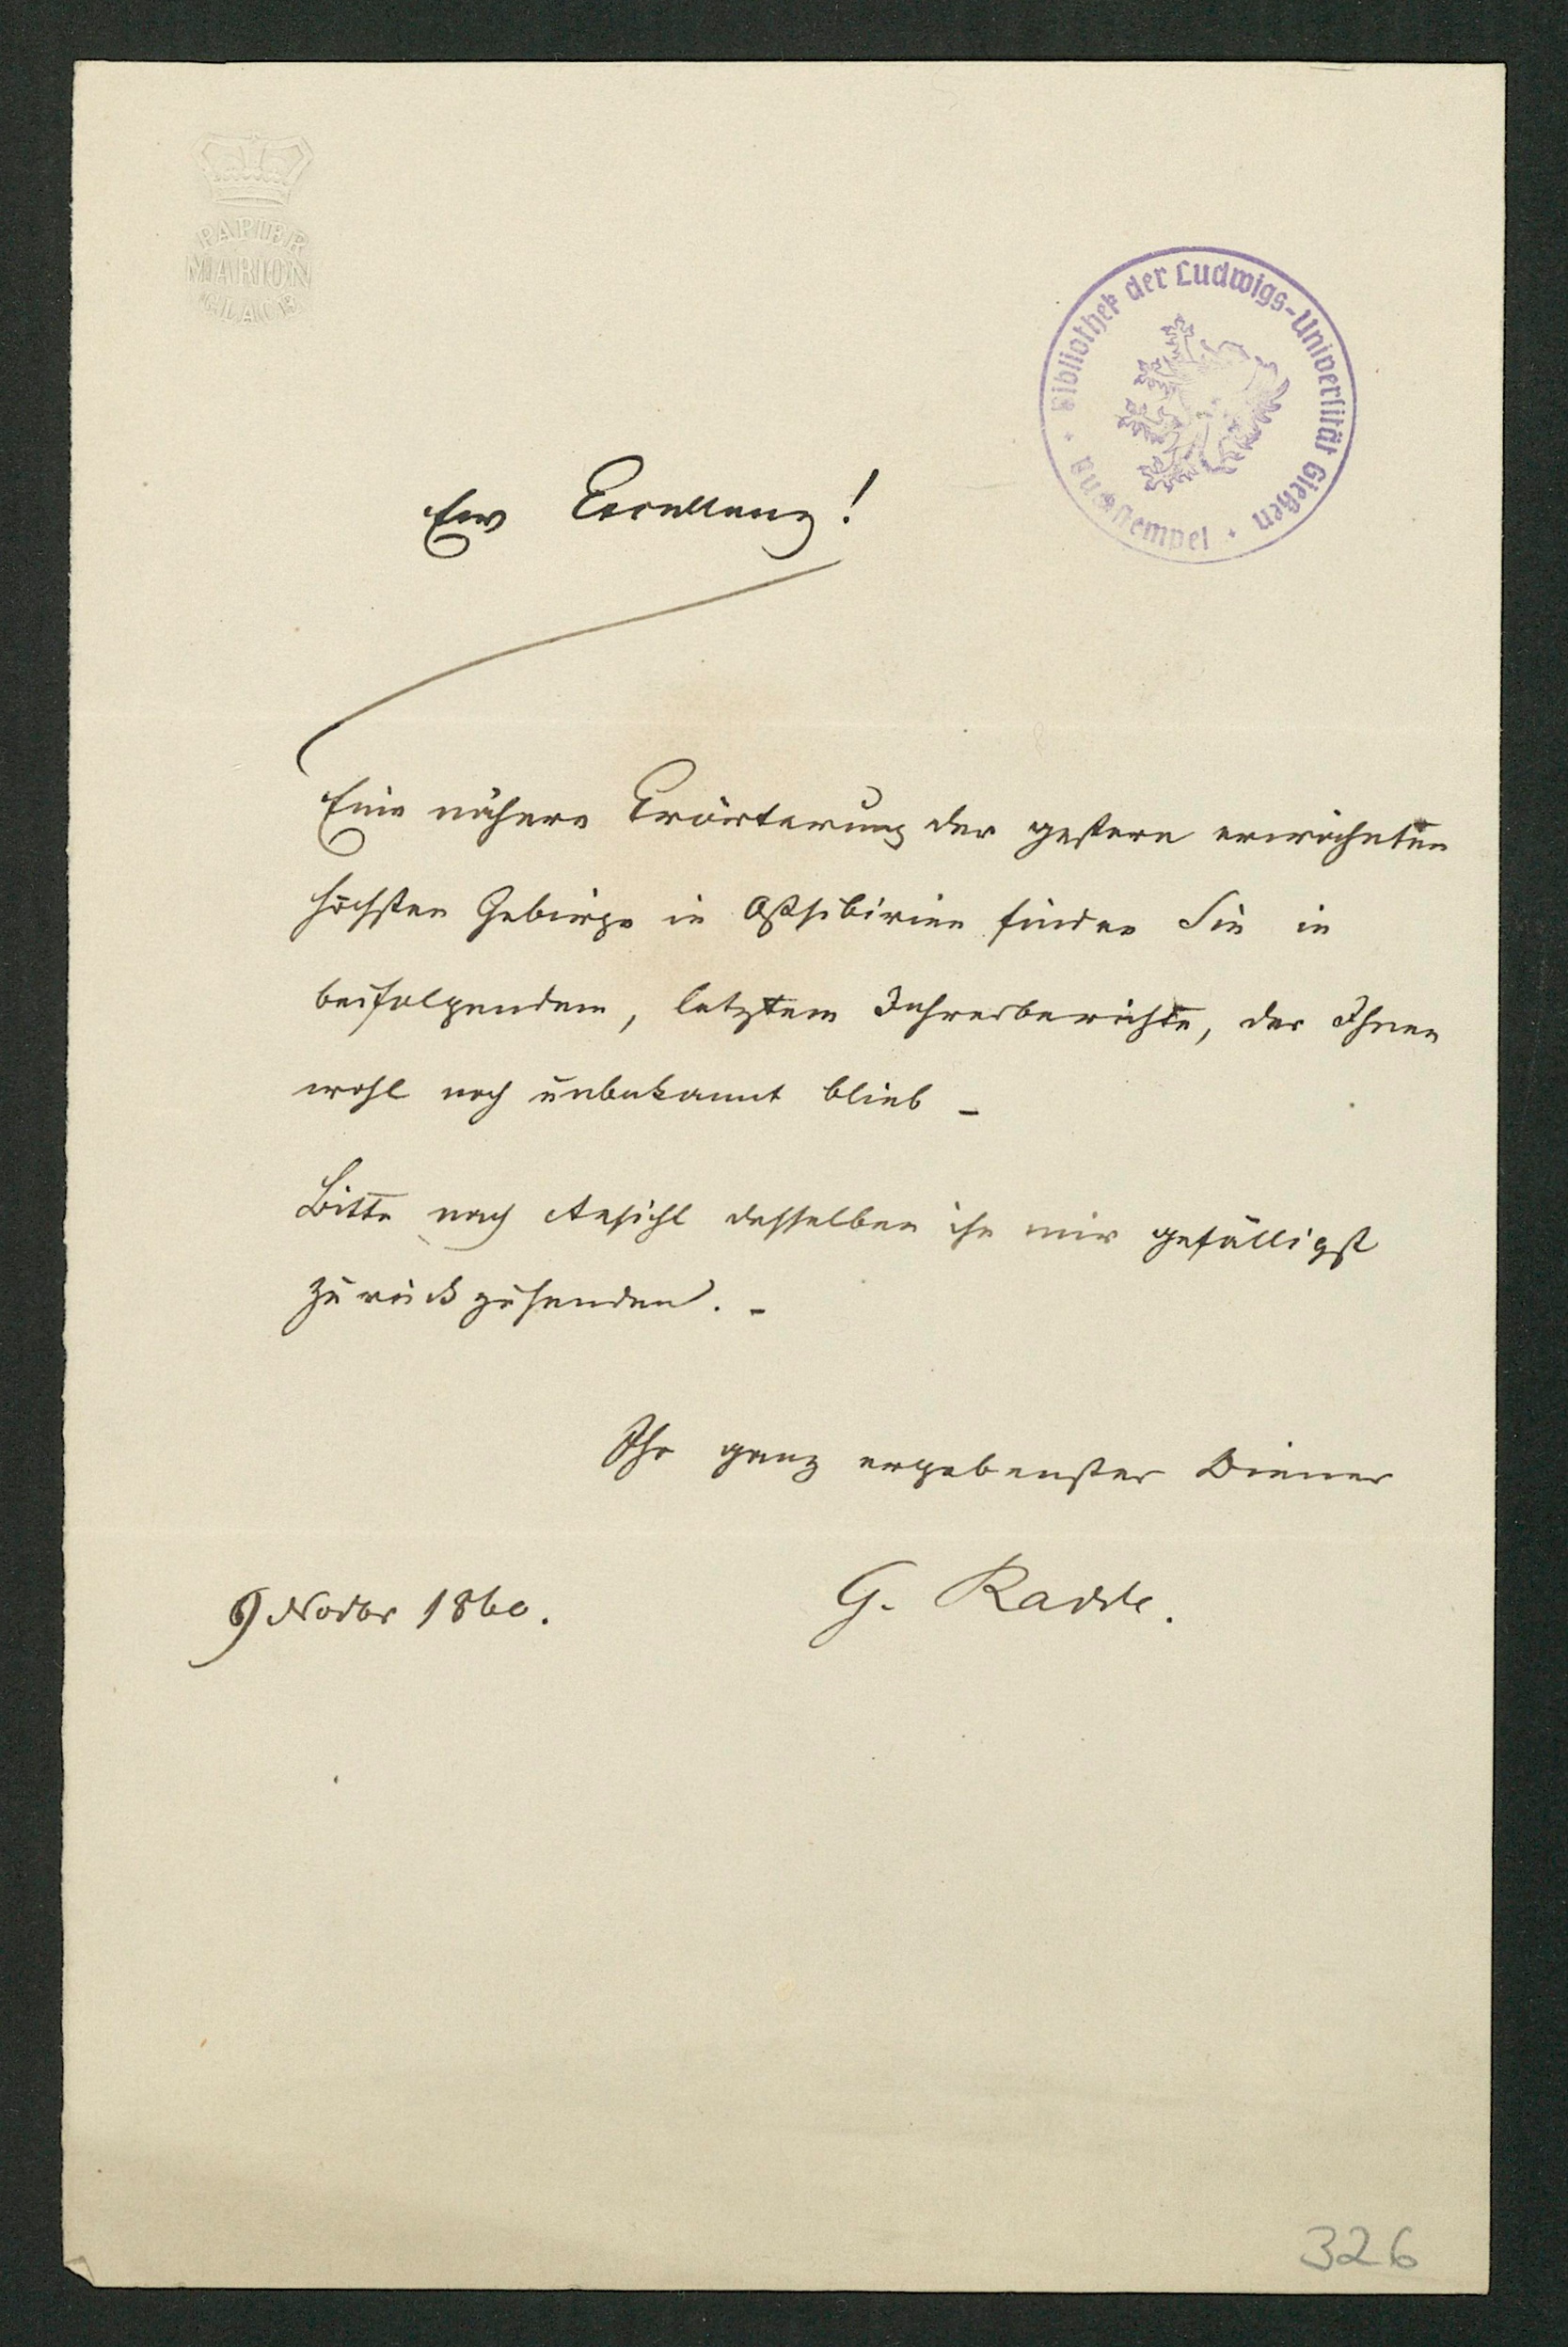 PAPIER
MARION
GLACÉ
Bibliothek der Ludwigs-Universität Gießen
Buchstempel
Ew Excellenz!
Eine nähere Erörterung der gestern erwähnten
höchsten Gebirge in Ostsibirien finden Sie in
beifolgendem, letztem Jahresberichte, der Ihnen
wohl noch unbekannt blieb –
Bitte nach Ansicht desselben ihn mir gefälligst
zurückzusenden. –
Ihr ganz ergebenster Diener
G. Radde.
9 Novbr 1860.
326